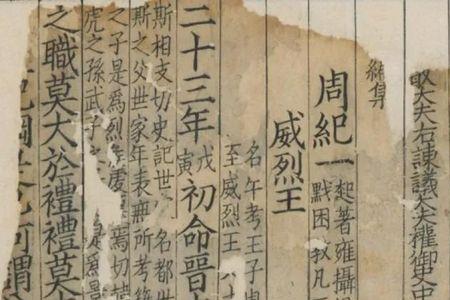 大夫右諫議大夫權御史中
編集
周紀一
起著雍攝
黓困敦凡
威烈王
名午考王子
至威烈王
二十三年
戊
寅
初命晉
斯相支切史記世 名都世
斯之父世家年表無所考
之子是爲烈侯虔 焉切
虎之孫武子 是爲景
之職莫大於禮禮莫大
紀綱是也何謂